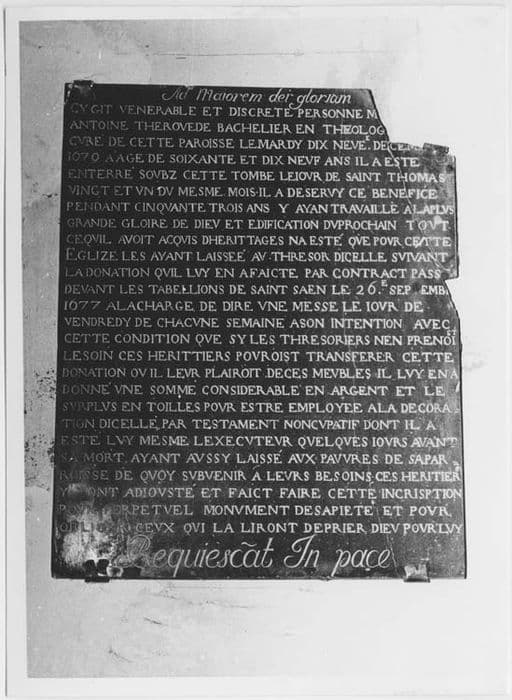 Ad Maiorem dei gloriam
CY GIT VENERABLE ET DISCRETE PERSONNE M
ANTOINE THEROVEDE BACHELIER EN THEOLOG
CVRE DE CETTE PAROISSE LEMARDY DIX NEVE. DECEM
1679 AAGE DE SOIXANTE ET DIX NEVF ANS IL A ESTE
ENTERRE SOVBZ CETTE TOMBE LEIOVR DE SAINT THOMAS
VINGT ET VN DV MESME MOIS IL A DESERVY CE BENEFICE
PENDANT CINQVANTE TROIS ANS Y AYAN TRAVAILLE ALAPLVS
GRANDE GLOIRE DE DIEV ET EDIFICATION DVPROCHAIN TOVT
CEQVIL AVOIT ACQVIS DHERITTAGES NA ESTÉ QVE POVR CETTE
EGLIZE LES AYANT LAISSEÉ AV THRESOR DICELLE SVIVANT
LA DONATION QVIL LVY EN A FAICTE PAR CONTRACT PASS
DEVANT LES TABELLIONS DE SAINT SAEN LE 26.E SEP EMB
1677 ALACHARGE DE DIRE VNE MESSE LE IOVR DE
VENDREDY DE CHACVNE SEMAINE ASON INTENTION AVEC
CETTE CONDITION QVE SY LES THRESORIERS NEN PRENOI
LESOIN CES HERITTIERS POVROIST TRANSFERER CETTE
DONATION OV IL LEVR PLAIROIT DECES MEVBLES IL LVY EN A
DONNÉ VNE SOMME CONSIDERABLE EN ARGENT ET LE
SVRPLVS EN TOILLES POVR ESTRE EMPLOYEE ALA DECORA
TION DICELLE PAR TESTAMENT NONCVPATIF DONT IL A
ESTE LVY MESME LEXECVTEVR QVELQVES IOVRS AVANT
SA MORT AYANT AVSSY LAISSÉ AVX PAVVRES DE SAPAR
ROISSE DE QVOY SVBVENIR A LEVRS BESOINS CES HERITIER
Y ONT ADIOVSTÉ ET FAICT FAIRE CETTE INCRISPTION
POVR PERPETVEL MONVMENT DESAPIETE ET POVR
OBLIGER CEVX QVI LA LIRONT DEPRIER DIEV POVR LVY
Requiescãt In pace